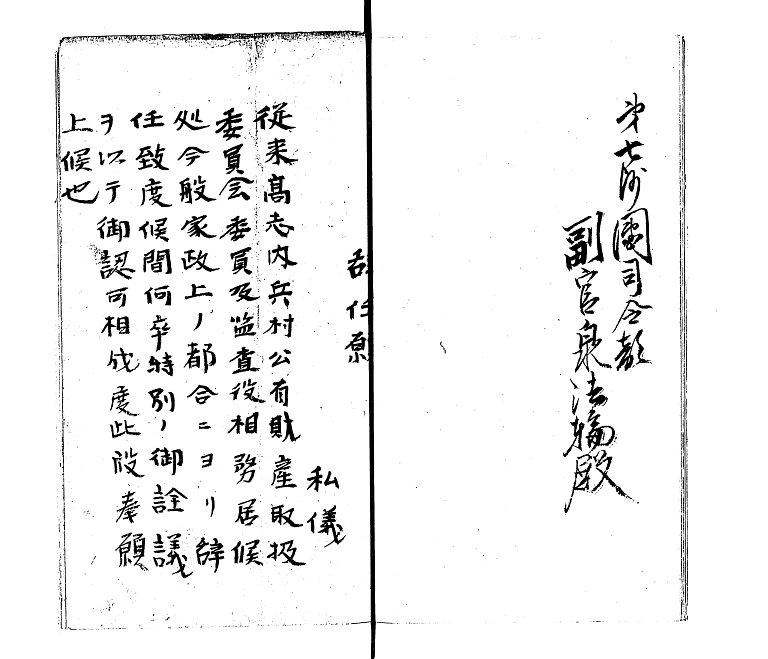 第七師團司令部
副官泉法輪殿
辞任願
私儀
従来高志内兵村公有財産取扱
委員会委員及監査役相努居候
処今般家政上ノ都合ニヨリ辞
任致度候間何卒特別ノ御詮議
ヲ以テ御認可相成度此段奉願
上候也